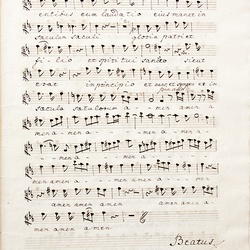 entibus eum laudatio eius manet in
saeculum saeculi gloria patri et
filio et spiritui sancto sicut
erat in principio et nunc et semper et in
saecula saeculorum a - men amen
men amen a - - men amen a
men amen - a - - -
- - - men amen a
men amen a - - - men amen
amen amen amen amen a
men amen amen
Beatus.